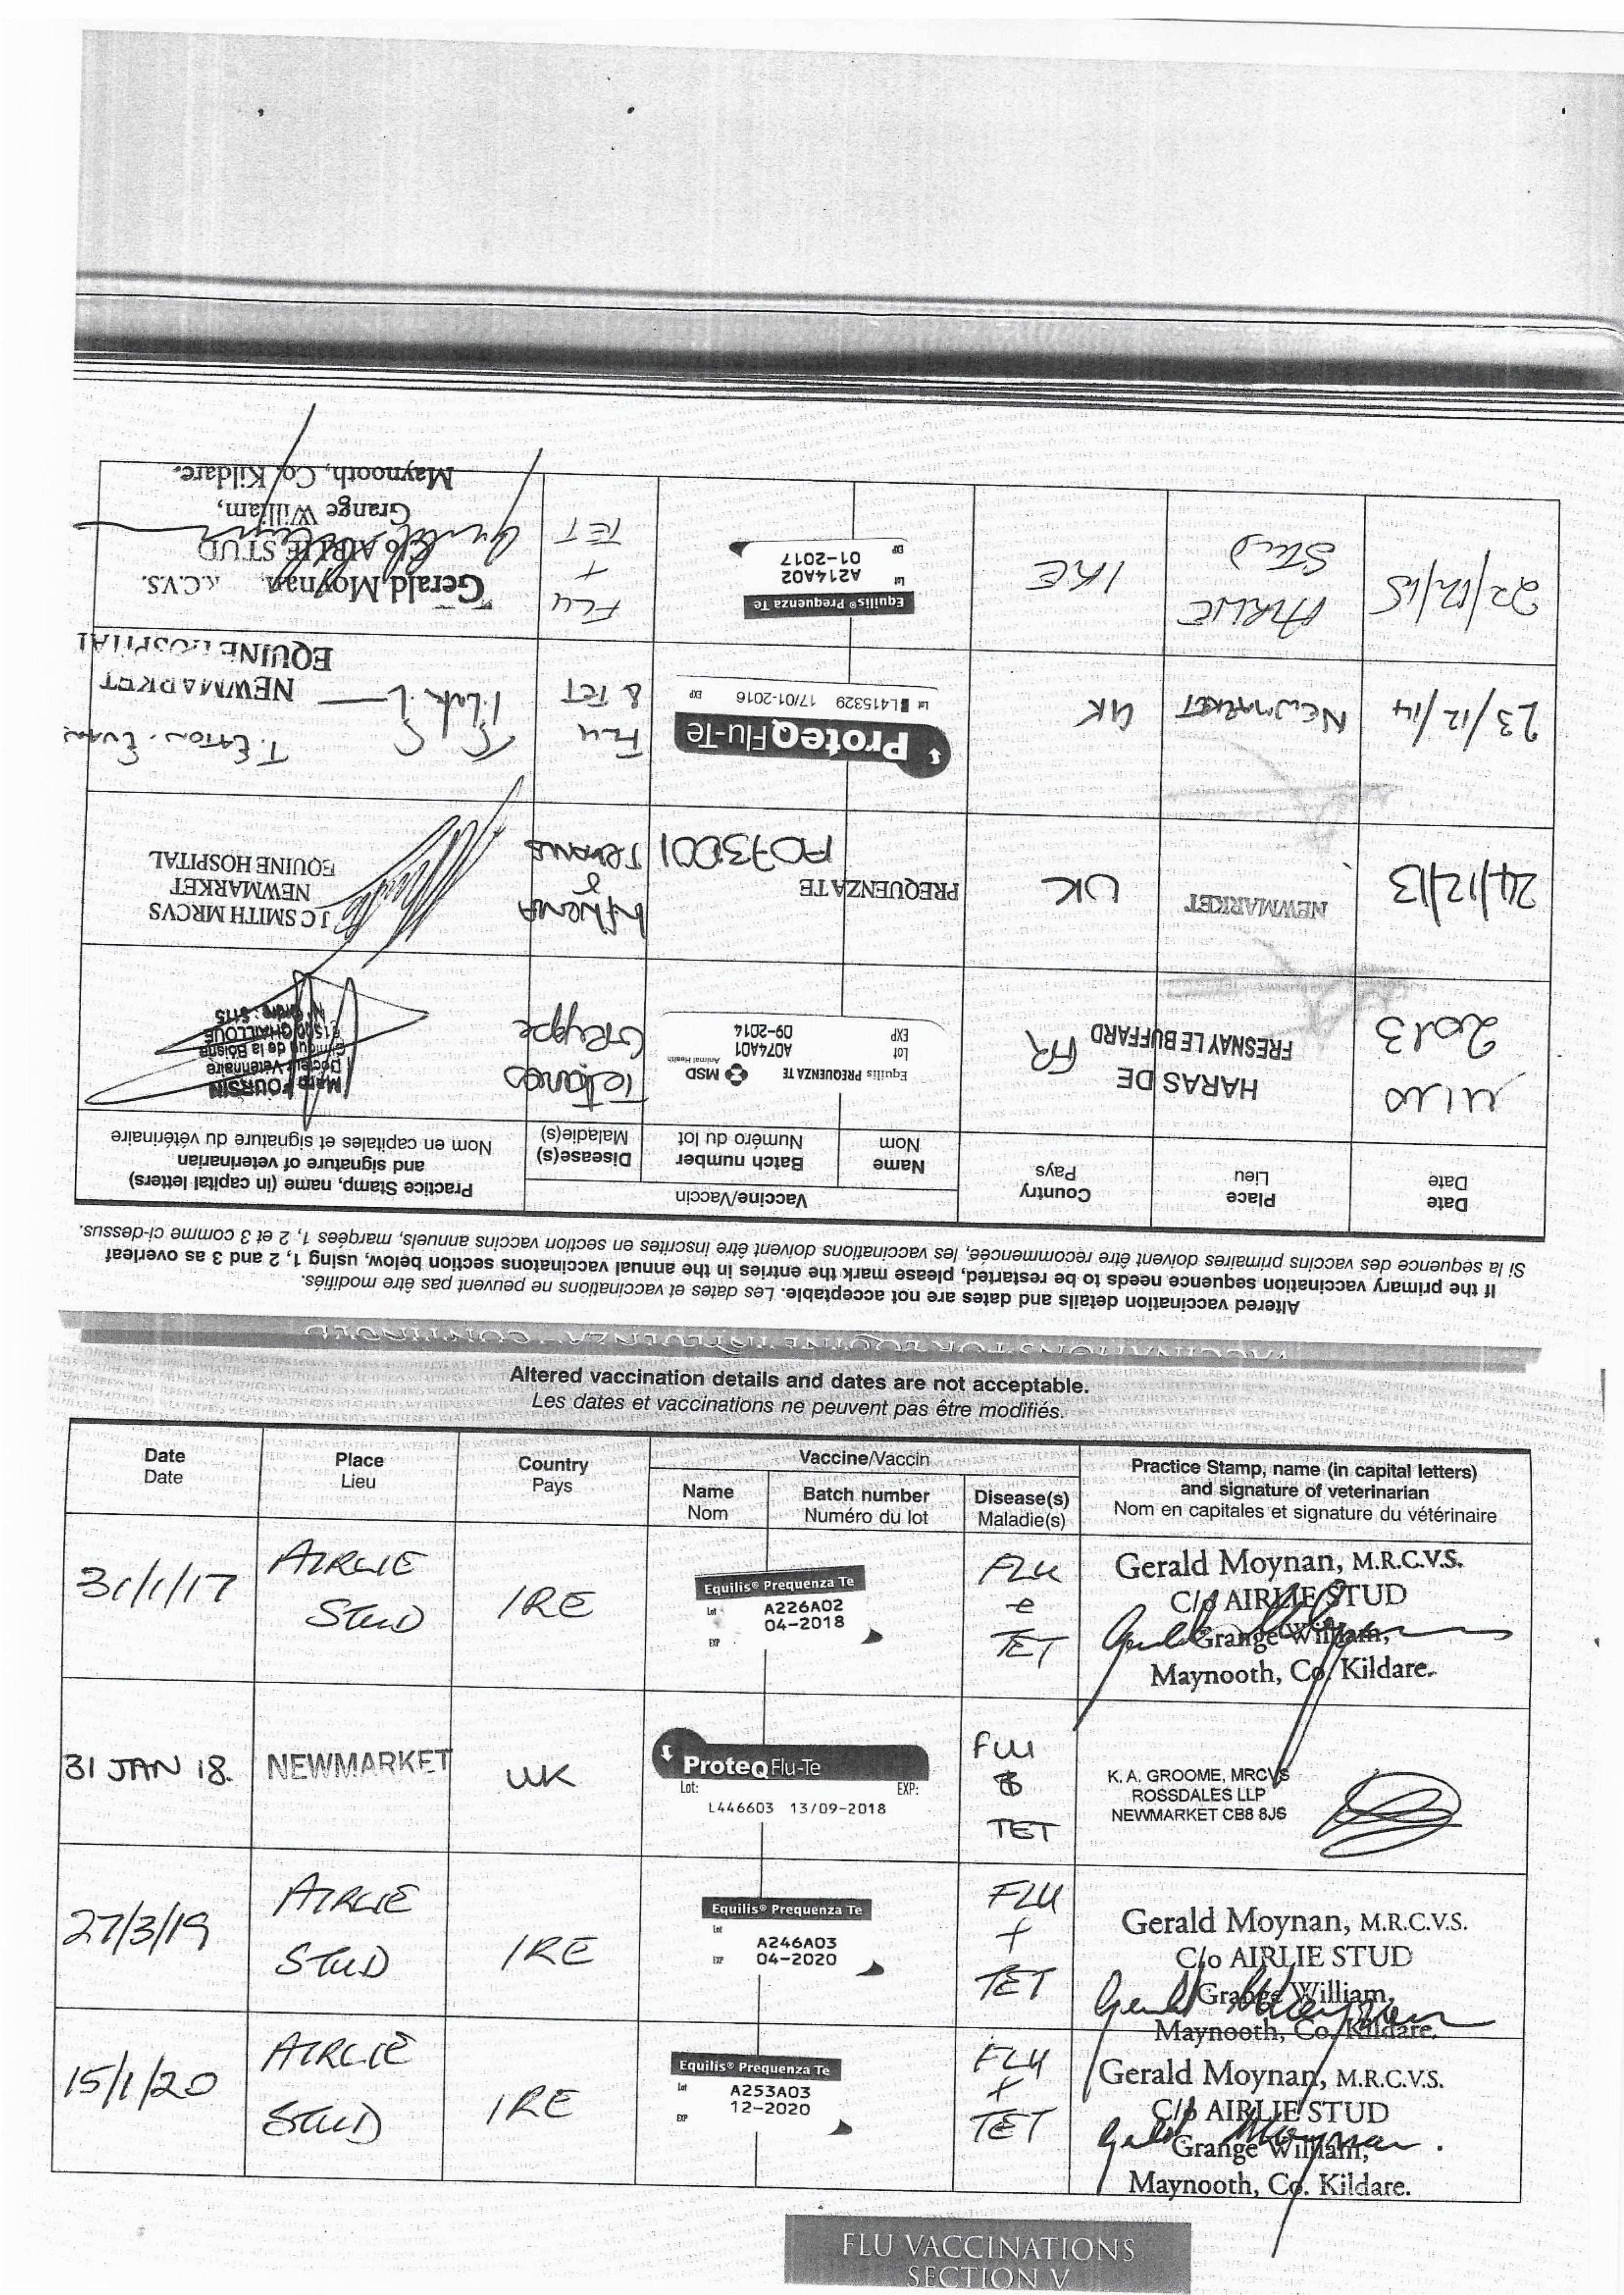 VACCINATIONS FOR EQUINE INFLUENZA - CONTINUED
Altered vaccination details and dates are not acceptable. Les dates et vaccinations ne peuvent pas être modifiés.
If the primary vaccination sequence needs to be restarted, please mark the entries in the annual vaccinatons section below, using 1, 2 and 3 as overleaf
Si la séquence des vaccins primaires doivent être recommencée, les vaccinations doivent être inscrites en section vaccins annuels, marquées 1, 2 et 3 comme ci-dessus.
Date
Date
Place
Lieu
Country
Pays
Vaccine/Vaccin
Name
Nom
Batch number
Numéro du lot
Disease(s)
Maladie(s)
Practice Stamp, name (in capital letters)
and signature of veterinarian
Nom en capitales et signature du vétérinaire
2013
HARAS DE
FRESNAY LE BUFFARD
FR
Equilis PREQUENZA TE
MSD
Animal Health
Lot
A074A01
EXP
09-2014
Tetanos
Grippe
Marc FOURSIN
Docteur Vétérinaire
24/12/13
NEWMARKET
UK
PREQUENZA TE
A073D01
Influenza
&
Tetanus
J C SMITH MRCVS
NEWMARKET
EQUINE HOSPITAL
23/12/14
NEWMARKET
UK
ProteqFlu-Te
Lot
L415329 17/01-2016
EXP
FLU
& TET
NEWMARKET
EQUINE HOSPITAL
22/12/15
AIRLIE
STUD
IRE
Equilis® Prequenza Te
Lot
A214A02
EXP
01-2017
FLU
+
TET
Gerald Moynan,
C/o AIRLIE STUD
Grange William,
Maynooth, Co. Kildare.
Altered vaccination details and dates are not acceptable.
Les dates et vaccinations ne peuvent pas être modifiés.
Date
Date
Place
Lieu
Country
Pays
Vaccine/Vaccin
Name
Nom
Batch number
Numéro du lot
Disease(s)
Maladie(s)
Practice Stamp, name (in capital letters)
and signature of veterinarian
Nom en capitales et signature du vétérinaire
31/1/17
AIRLIE
STUD
IRE
Equilis® Prequenza Te
Lot
A226A02
04-2018
EXP
FLU
e
TET
Gerald Moynan, M.R.C.V.S.
C/o AIRLIE STUD
Grange William,
Maynooth, Co. Kildare.
31 JAN 18.
NEWMARKET
UK
ProteqFlu-Te
Lot:
EXP:
L446603 13/09-2018
FLU
&
TET
K. A. GROOME, MRCVS
ROSSDALES LLP
NEWMARKET CB8 8JS
27/3/19
AIRLIE
STUD
IRE
Equilis® Prequenza Te
Lot
A246A03
EXP
04-2020
FLU
+
TET
Gerald Moynan, M.R.C.V.S.
C/o AIRLIE STUD
Grange William,
Maynooth, Co. Kildare.
15/1/20
AIRLIE
STUD
IRE
Equilis® Prequenza Te
Lot
A253A03
12-2020
EXP
FLU
+
TET
Gerald Moynan, M.R.C.V.S.
C/o AIRLIE STUD
Grange William,
Maynooth, Co. Kildare.
FLU VACCINATIONS
SECTION V